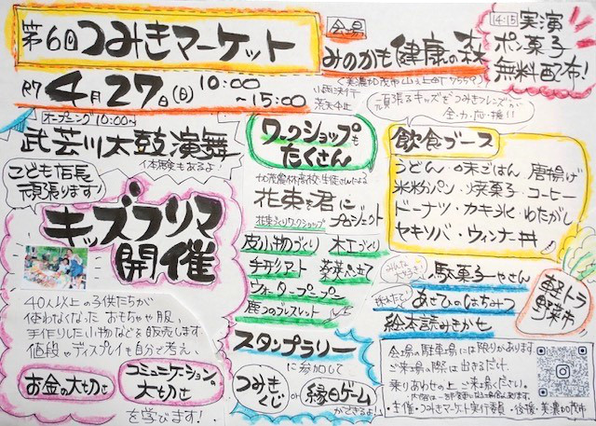 第6回つみきマーケット
R7 4月27日(日) 10:00〜15:00
会場
みのかも健康の森
小雨決行
荒天中止
14:15 実演
ポン菓子
無料配布!
オープニング 10:00〜
武芸川太鼓演舞
体験会もあるよ!
こども店長
頑張ります!
キッズフリマ
開催
40人以上の子供たちが
使わなくなったおもちゃや服、
手作りした小物などを販売します
値段やディスプレイも自分で考え、
お金の大切さ
コミュニケーションの
大切さ
を学びます!
ワークショップも
たくさん
加茂農林高校・生徒さんによる
花束を君に
プロジェクト
花束づくりワークショップ
皮小物づくり 木工づくり
チデリアート
ウォータープープン
鹿つのブレスレット
スタンプラリー
に参加して
つみきくじ
or
縁日ゲーム
ができるよ!
頑張るキッズをつみきフレンズが
全・力・応・援!!
飲食ブース
うどん・味ごはん・唐揚げ
米粉パン・焼菓子・コーヒー
ドーナツ・カキ氷・わたがし
ヤキソバ・ウィンナー丼
駄菓子やさん
あさひのはちみつ
絵本読みきかせ
軽トラ
野菜市
会場の駐車場には限りがあります
ご来場の際は出きるだけ、
乗りあわせの上ご来場ください。
・主催・つみきマーケット実行委員・後援・美濃加茂市